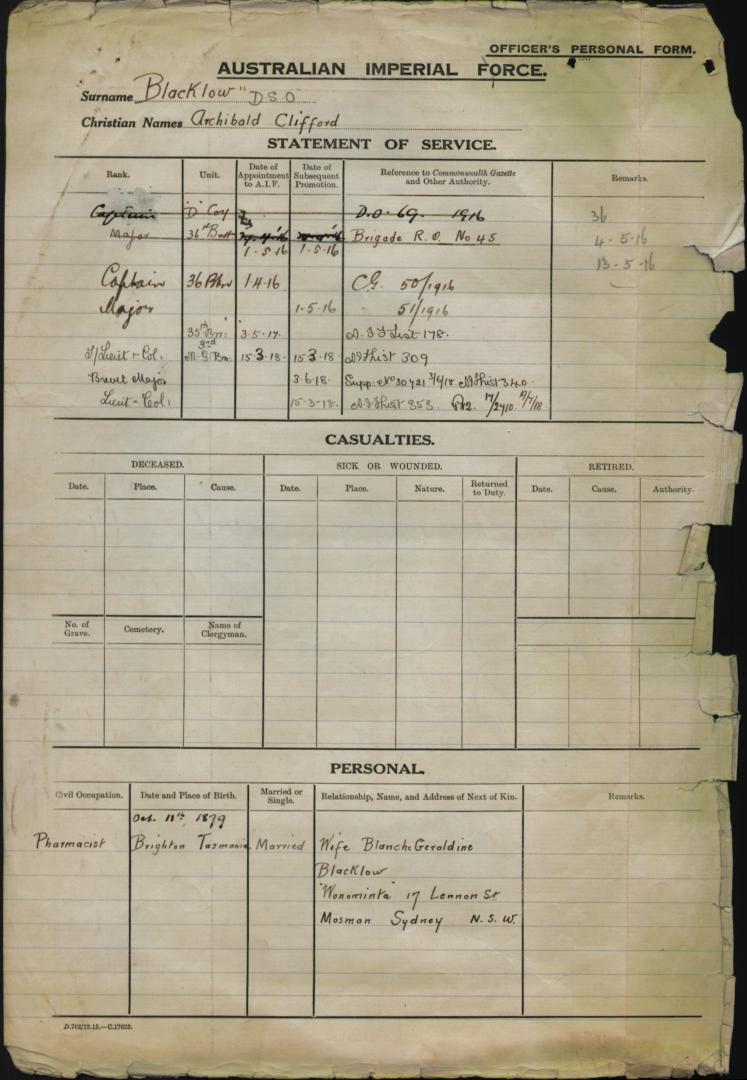 OFFICER'S PERSONAL FORM.
AUSTRALIAN IMPERIAL FORCE.
Surname Blacklow "DSO"
Christian Names Archibald Clifford
STATEMENT OF SERVICE.
Rank. Unit. Date of Appointment to A.I.F. Date of Subsequent Promotion. Reference to Commonwealth Gazette and Other Authority. Remarks.
Captain "D" Coy D.O. 69. 1916 36
Major 36th Batt Brigade R.O. No 45 4-5-16
1-5-16 1-5-16 13-5-16
Captain 36 Bn 1-4-16 C.G. 50/1916
Major 1-5-16 " 51/1916
35th Bn: 3-5-17. A.I.F List 178.
T/Lieut-Col. 3rd M.G.Bn: 15-3-18. 15-3-18. AIF List 309
Brevet Major 3-6-18. Supp: No 30721 3/6/18. AIF List 340.
Lieut-Col: 15-3-18. AIF List 353.
CASUALTIES.
DECEASED. SICK OR WOUNDED. RETIRED.
Date. Place. Cause. Date. Place. Nature. Returned to Duty. Date. Cause. Authority.
No. of Grave. Cemetery. Name of Clergyman.
PERSONAL.
Civil Occupation. Date and Place of Birth. Married or Single. Relationship, Name, and Address of Next of Kin. Remarks.
Oct. 11th 1879
Pharmacist Brighton Tasmania Married Wife Blanche Geraldine
Blacklow
"Wonominta" 17 Lennon St
Mosman Sydney N.S.W.
D.762/13.15.—C.17623.